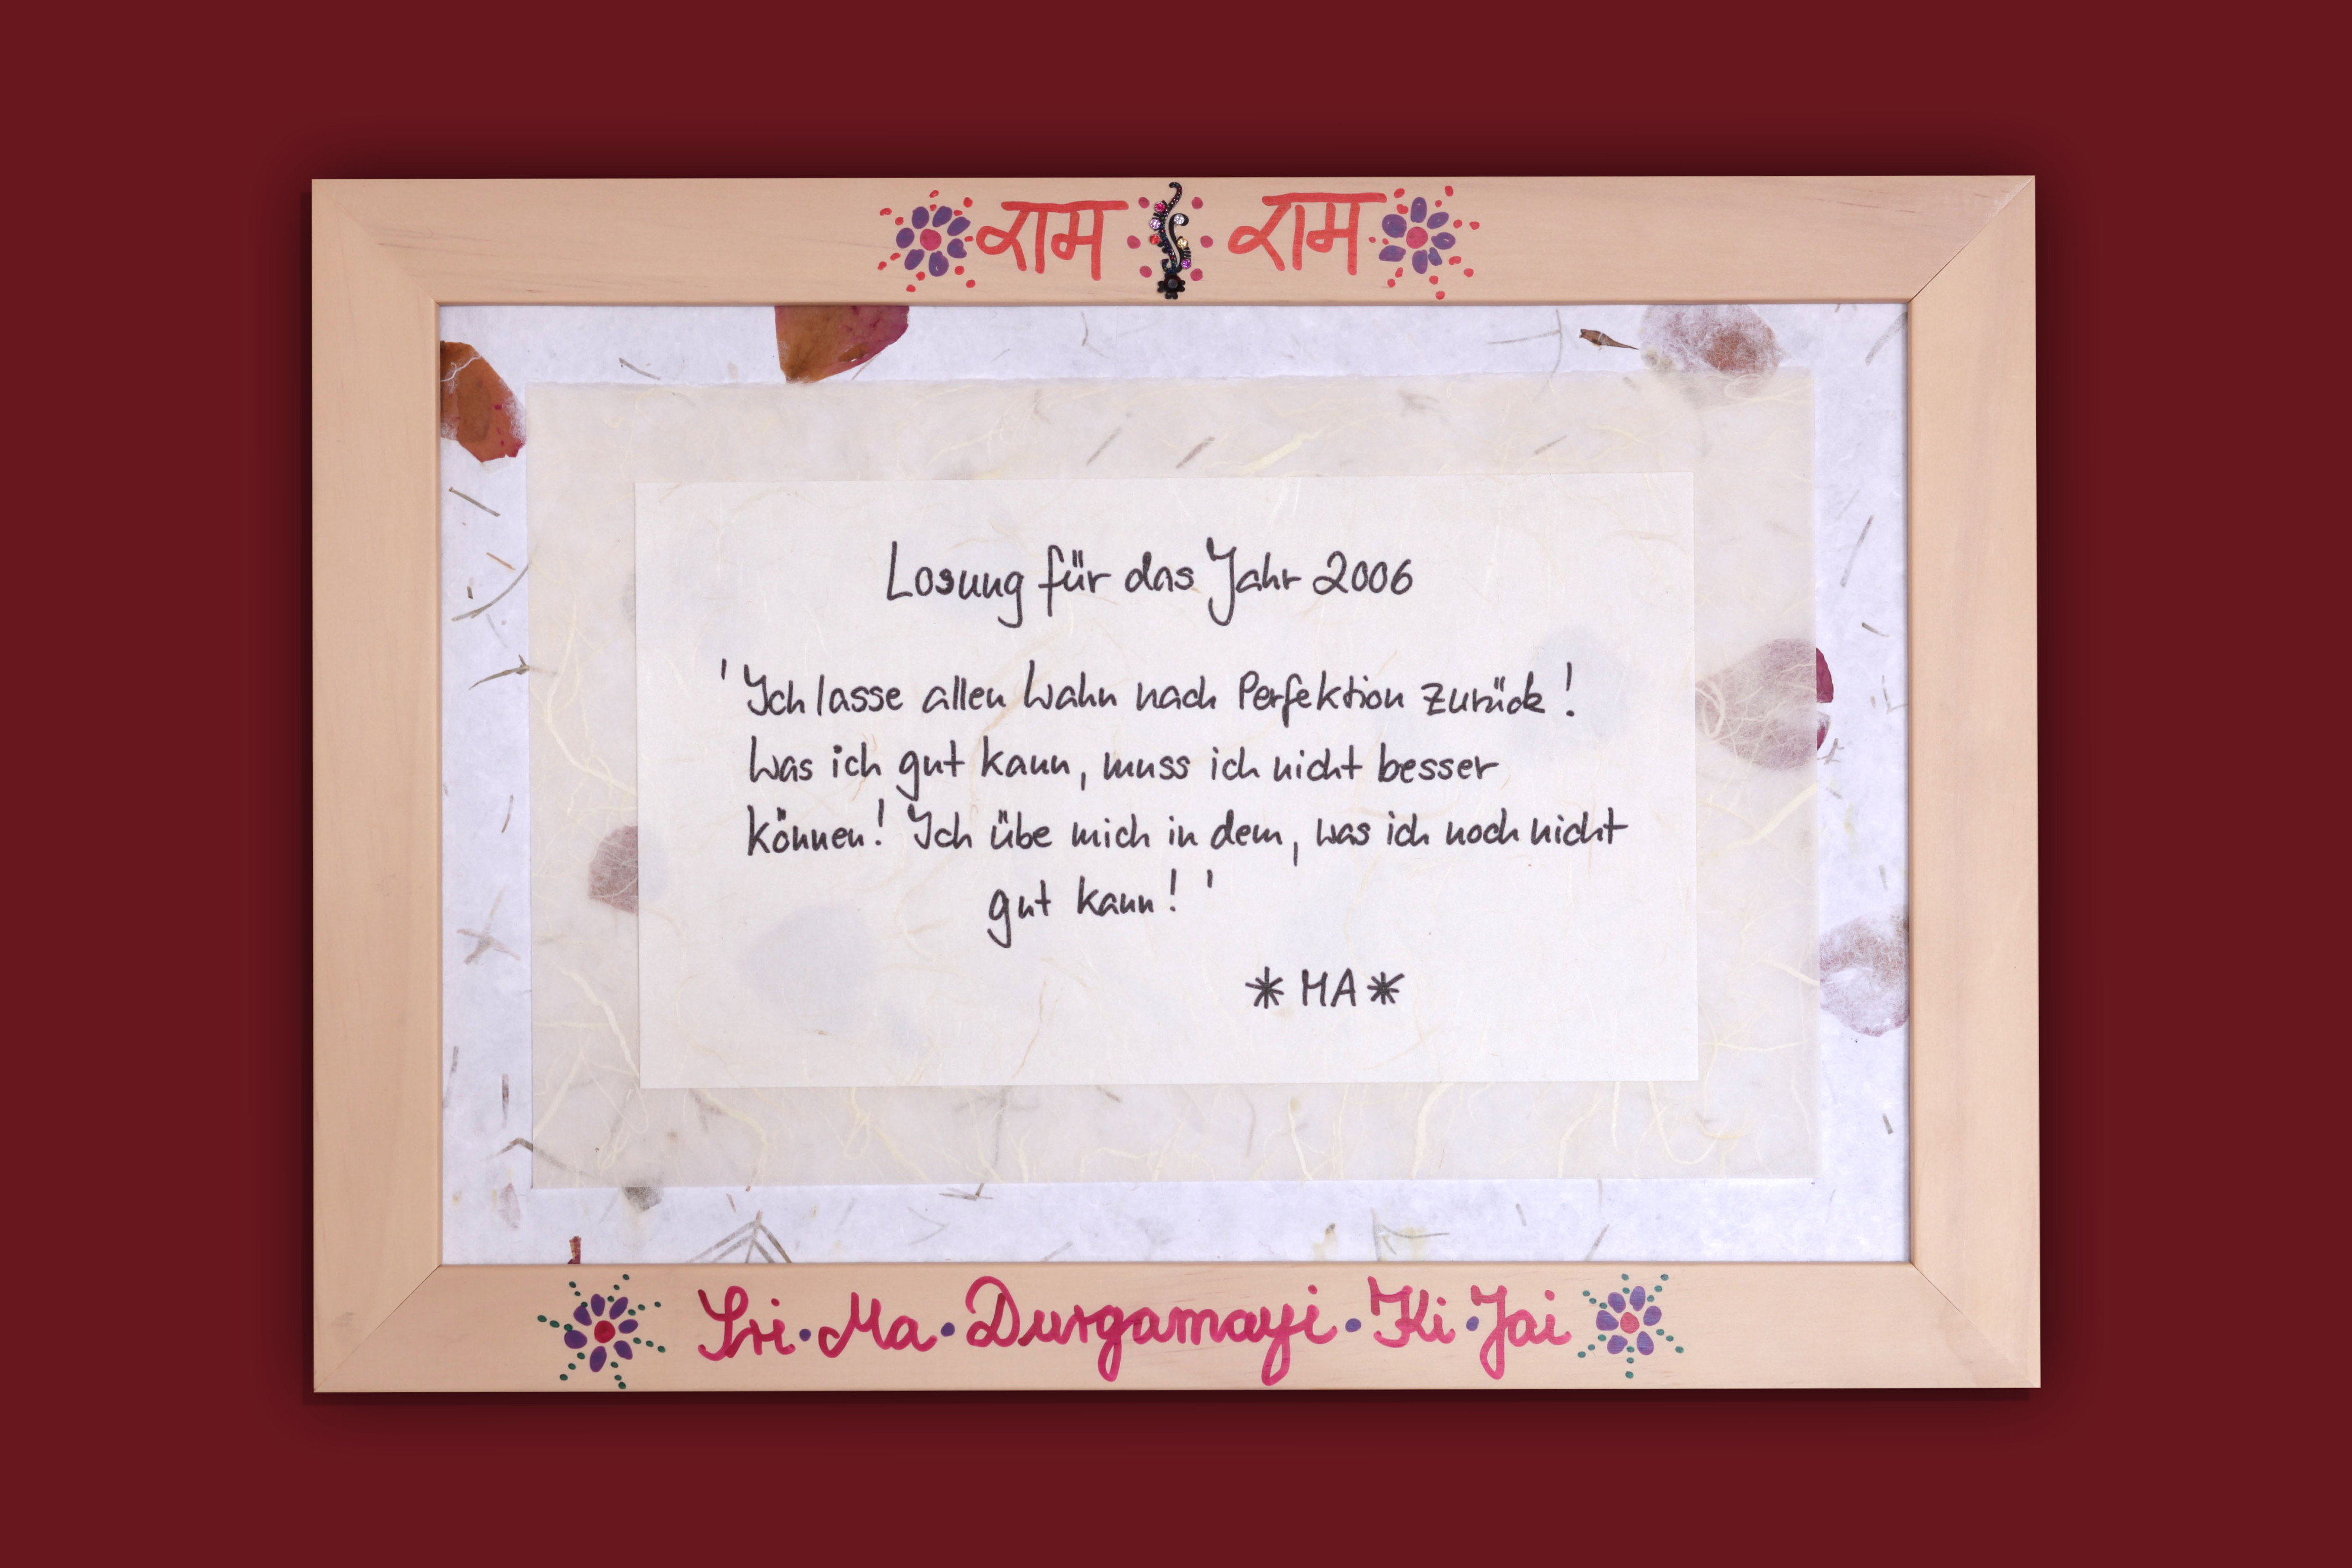 राम राम
Losung für das Jahr 2006
'Ich lasse allen Wahn nach Perfektion zurück!
Was ich gut kann, muss ich nicht besser
können! Ich übe mich in dem, was ich noch nicht
gut kann!'
* MA *
Sri • Ma • Durgamayi • Ki • Jai